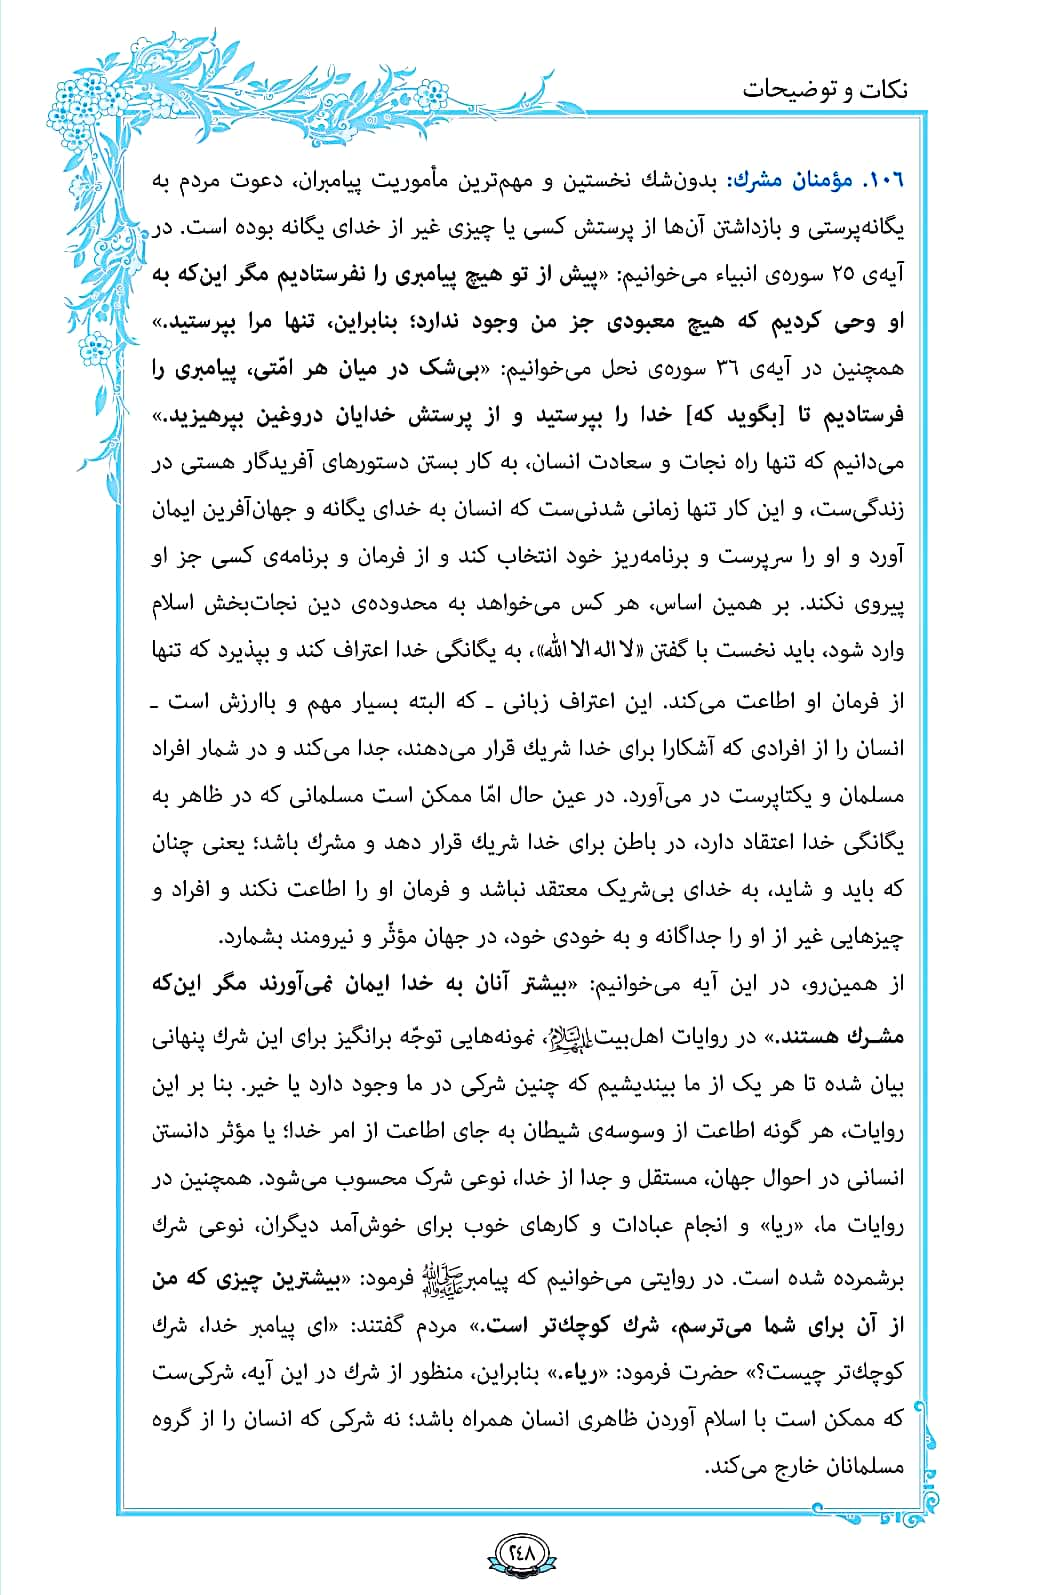 نکات و توضیحات
۱۰۶. مؤمنان مشرك: بدون‌شك نخستین و مهم‌ترین مأموریت پیامبران، دعوت مردم به
یگانه‌پرستی و بازداشتن آن‌ها از پرستش کسی یا چیزی غیر از خدای یگانه بوده است. در
آیه‌ی ۲۵ سوره‌ی انبیاء می‌خوانیم: «پیش از تو هیچ پیامبری را نفرستادیم مگر این‌که به
او وحی کردیم که هیچ معبودی جز من وجود ندارد؛ بنابراین، تنها مرا بپرستید.»
همچنین در آیه‌ی ۳۶ سوره‌ی نحل می‌خوانیم: «بی‌شک در میان هر امّتی، پیامبری را
فرستادیم تا [بگوید که] خدا را بپرستید و از پرستش خدایان دروغین بپرهیزید.»
می‌دانیم که تنها راه نجات و سعادت انسان، به کار بستن دستورهای آفریدگار هستی در
زندگی‌ست، و این کار تنها زمانی شدنی‌ست که انسان به خدای یگانه و جهان‌آفرین ایمان
آورد و او را سرپرست و برنامه‌ریز خود انتخاب کند و از فرمان و برنامه‌ی کسی جز او
پیروی نکند. بر همین اساس، هر کس می‌خواهد به محدوده‌ی دین نجات‌بخش اسلام
وارد شود، باید نخست با گفتن «لا اله الا الله»، به یگانگی خدا اعتراف کند و بپذیرد که تنها
از فرمان او اطاعت می‌کند. این اعتراف زبانی ـ که البته بسیار مهم و باارزش است ـ
انسان را از افرادی که آشکارا برای خدا شریك قرار می‌دهند، جدا می‌کند و در شمار افراد
مسلمان و یکتاپرست در می‌آورد. در عین حال امّا ممکن است مسلمانی که در ظاهر به
یگانگی خدا اعتقاد دارد، در باطن برای خدا شریك قرار دهد و مشرك باشد؛ یعنی چنان
که باید و شاید، به خدای بی‌شریک معتقد نباشد و فرمان او را اطاعت نکند و افراد و
چیزهایی غیر از او را جداگانه و به خودی خود، در جهان مؤثّر و نیرومند بشمارد.
از همین‌رو، در این آیه می‌خوانیم: «بیشتر آنان به خدا ایمان نمی‌آورند مگر این‌که
مشـرك هستند.» در روایات اهل‌بیت علیهم‌السلام، نمونه‌هایی توجّه برانگیز برای این شرك پنهانی
بیان شده تا هر یک از ما بیندیشیم که چنین شرکی در ما وجود دارد یا خیر. بنا بر این
روایات، هر گونه اطاعت از وسوسه‌ی شیطان به جای اطاعت از امر خدا؛ یا مؤثر دانستن
انسانی در احوال جهان، مستقل و جدا از خدا، نوعی شرک محسوب می‌شود. همچنین در
روایات ما، «ریا» و انجام عبادات و کارهای خوب برای خوش‌آمد دیگران، نوعی شرك
برشمرده شده است. در روایتی می‌خوانیم که پیامبر صلی‌الله‌علیه‌وآله فرمود: «بیشترین چیزی که من
از آن برای شما می‌ترسم، شرك کوچك‌تر است.» مردم گفتند: «ای پیامبر خدا، شرك
کوچك‌تر چیست؟» حضرت فرمود: «ریاء.» بنابراین، منظور از شرك در این آیه، شرکی‌ست
که ممکن است با اسلام آوردن ظاهری انسان همراه باشد؛ نه شرکی که انسان را از گروه
مسلمانان خارج می‌کند.
۲۴۸